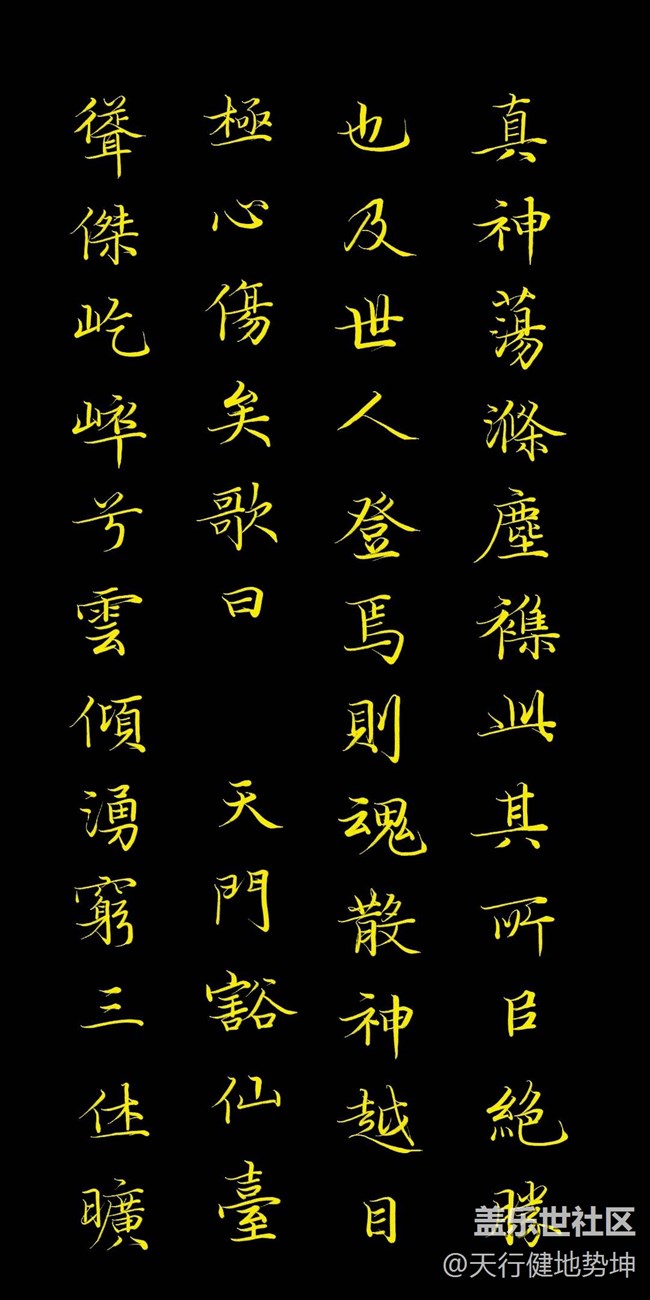 真神蕩滌塵襍此其所㠯絕勝
也及世人登焉則魂散神越目
極心傷矣歌曰 天門豁仙臺
聳傑屹崪兮雲傾湧窮三休曠
盖乐世社区
@天行健地势坤